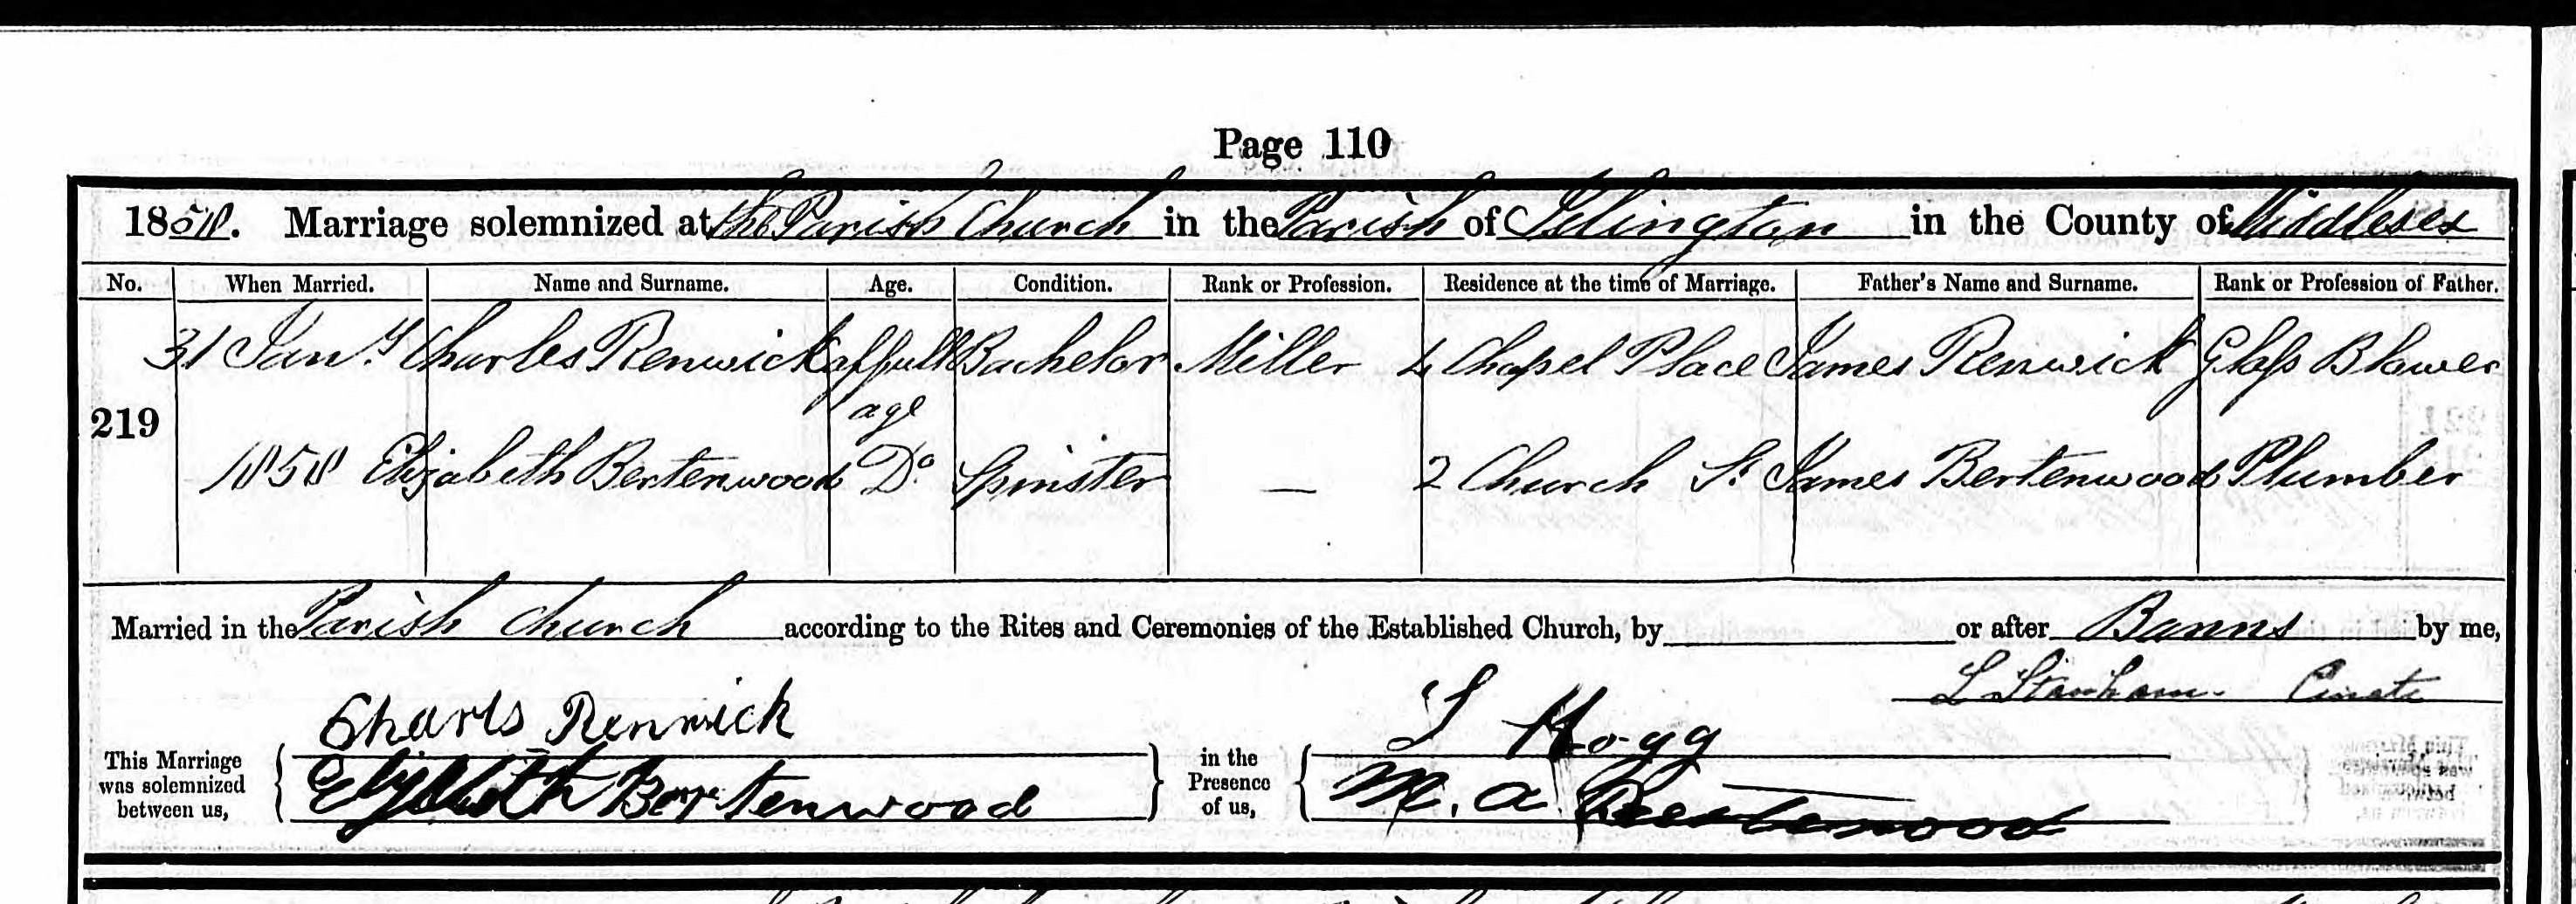 Page 110
1858. Marriage solemnized at the Parish Church in the Parish of Islington in the County of Middlesex
No. When Married. Name and Surname. Age. Condition. Rank or Profession. Residence at the time of Marriage. Father's Name and Surname. Rank or Profession of Father.
31 Jany Charles Renwick of full Bachelor Miller 4 Chapel Place James Renwick Glass Blower
age
219
1858 Elizabeth Bertenwood Do Spinster — 2 Church St James Bertenwood Plumber
Married in the Parish Church according to the Rites and Ceremonies of the Established Church, by or after Banns by me,
L Stanham. Curate
Charls Renwick
Hogg
This Marriage was solemnized between us,
Elizabeth Bertenwood
in the Presence of us,
M. a.